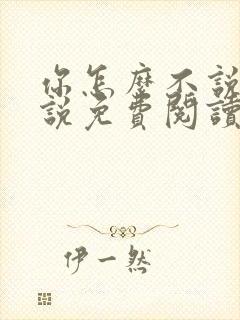 你怎麼不說
說免費閱讀
伊一然